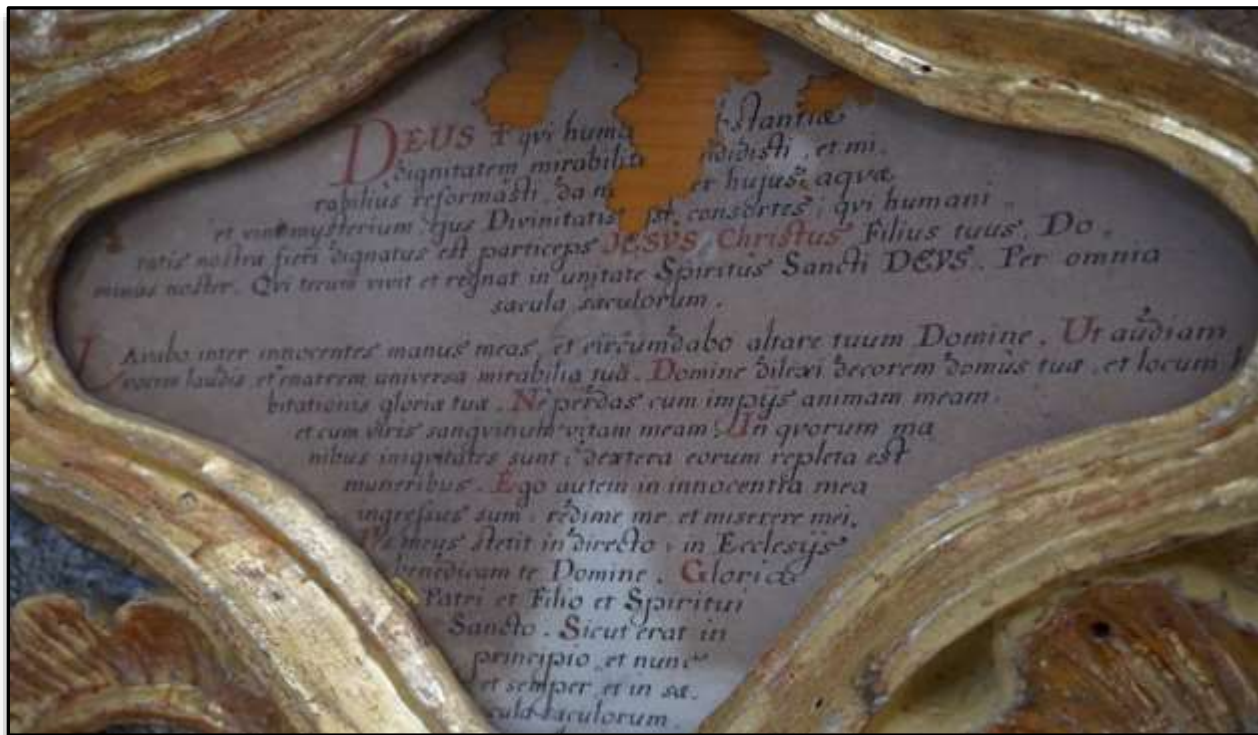 DEUS ✝ qui huma stantiæ
dignitatem mirabilit ndidisti, et mi.
rabilius reformasti, da n er hujus aquæ
et vini mysterium ejus Divinitatis consortes, qui humani
tatis nostra fieri dignatus est particeps JESVS Christus Filius tuus, Do.
minus noster. Qvi tecum vivit et regnat in unitate Spiritus Sancti DEVS. Per omnia
sacula saculorum.
LAvabo inter innocentes manus meas, et circumdabo altare tuum Domine. Ut audiam
vocem laudis et enarrem universa mirabilia tua. Domine dilexi decorem domus tua, et locum
bitationis gloria tua. Ne perdas cum impijs animam meam.
et cum viris sangvinum vitam meam. In qvorum ma
nibus iniqvitates sunt, dextera eorum repleta est
muneribus. Ego autem in innocentia mea
ingressus sum, redime me et miserere mei.
Pes meus stetit in directo, in Ecclesijs
benedicam te Domine. Gloriæ
Patri et Filio et Spiritui
Sancto. Sicut erat in
principio, et nunc
et semper et in sæ.
cula saculorum.